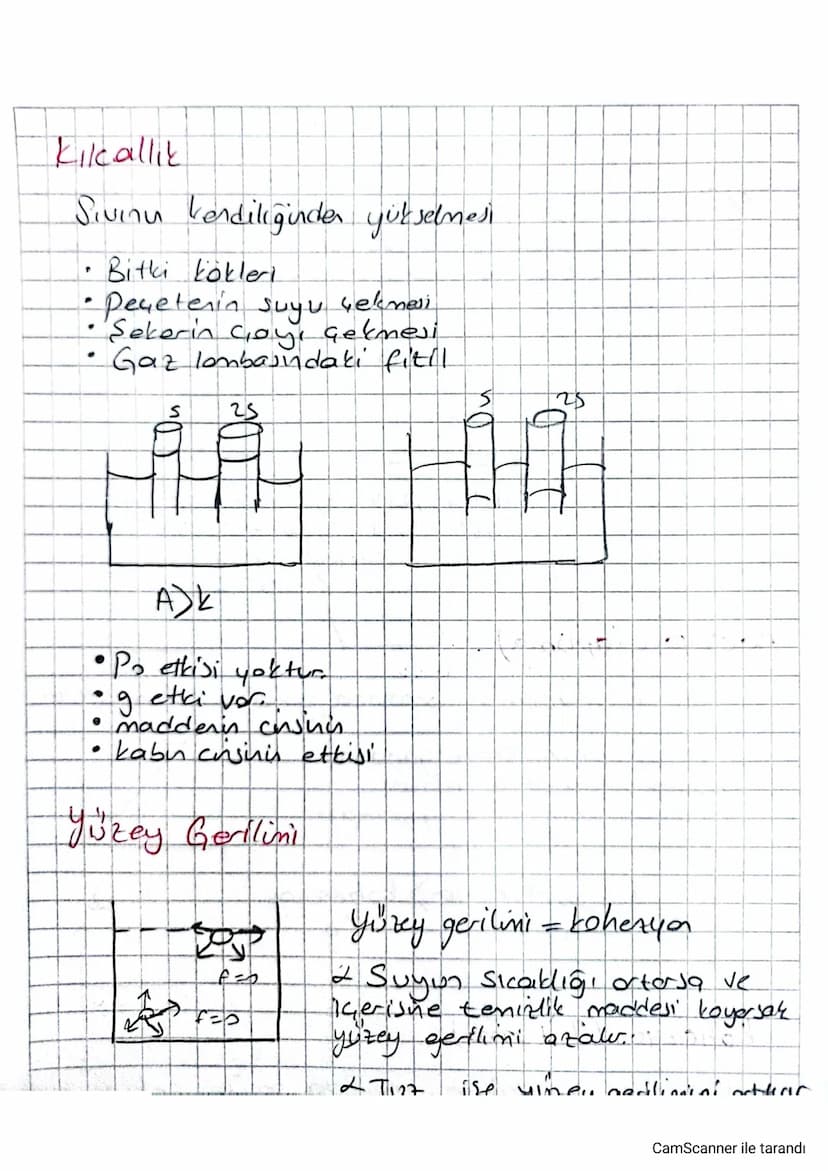 Kılcallık
Sıvının kendiliğinden yükselmesi
• Bitki kökleri
• Peçetenin suyu çekmesi
• Şekerin çayı çekmesi
• Gaz lambasındaki fitil
S 2S
S 2S
A>k
• P₀ etkisi yoktur.
• g etki var.
• maddenin cinsinin
• kabın cinsinin etkisi
Yüzey Gerilimi
Yüzey gerilimi = kohezyon
α Suyun sıcaklığı artarsa ve
içerisine temizlik maddesi koyarsak
yüzey gerilimi azalır.
α Tuz ise yüzey gerilimini arttırır
CamScanner ile tarandı